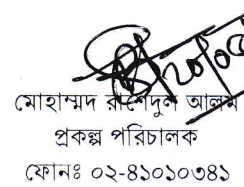 ২০/০৫
মোহাম্মদ রাশেদুল আলম
প্রকল্প পরিচালক
ফোনঃ ০২-৪১০১০৩৪১